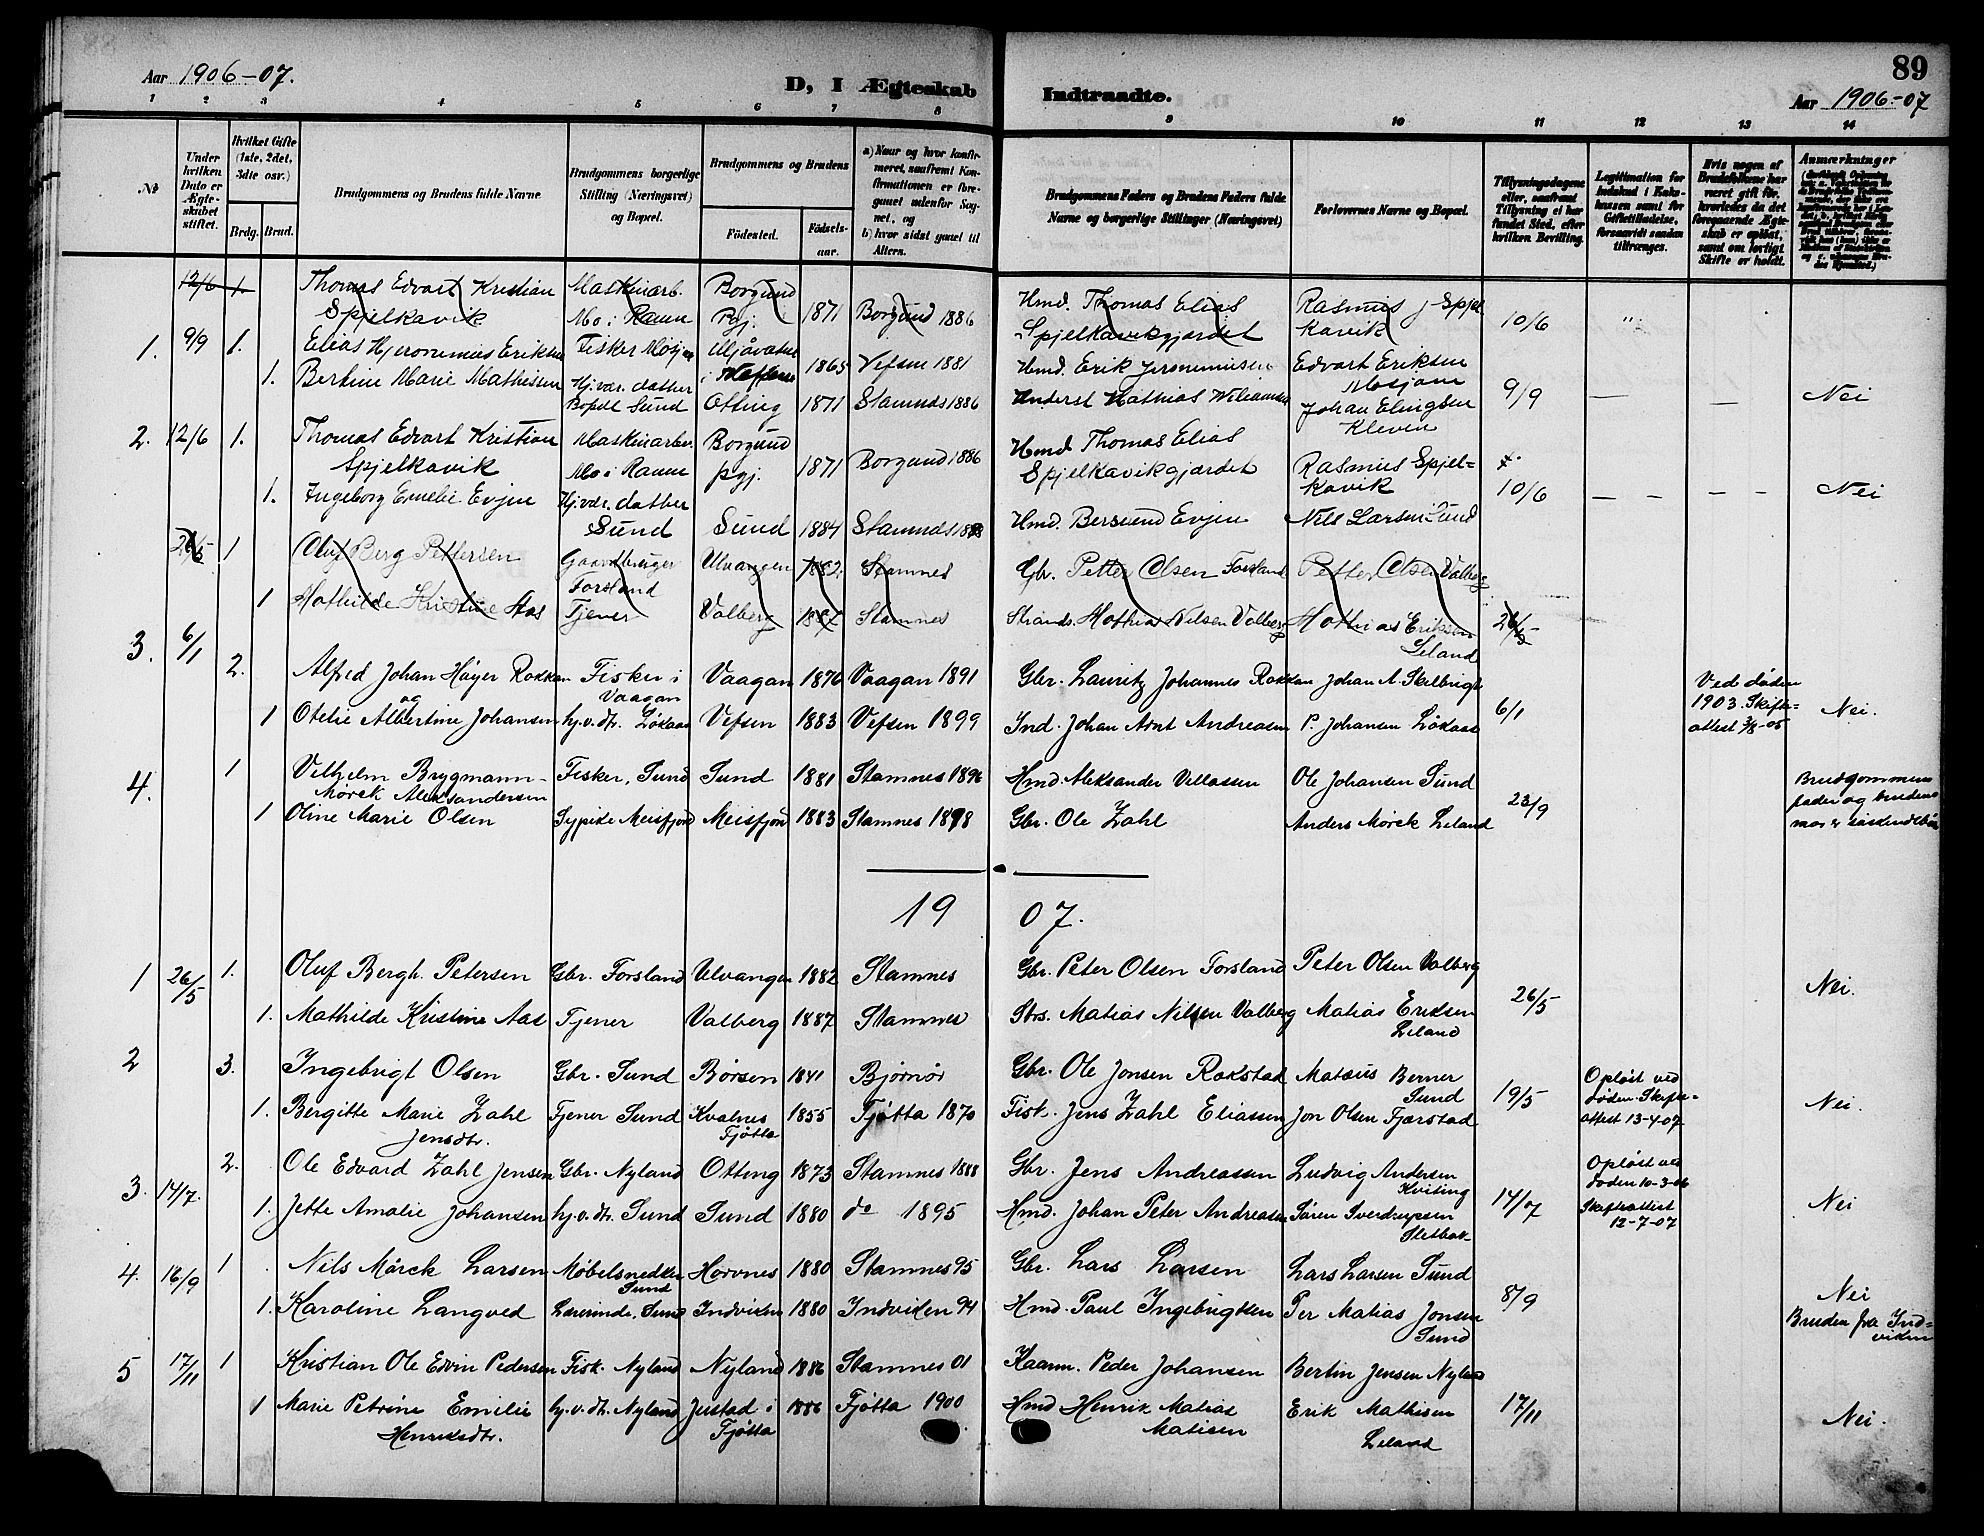 89
Aar 1906-07.
D, I Ægteskab Indtraadte.
Aar 1906-07
1 2 3 4 5 6 7 8 9 10 11 12 13 14
No
Under hvilken Dato er Ægteskabet stiftet.
Hvilket Gifte (1ste, 2det, 3die osv.)
Brdg. Brud.
Brudgommens og Brudens fulde Navne
Brudgommens borgerlige Stilling (Næringsvei) og Bopæl.
Brudgommens og Brudens
Fødested.
Fødselsaar.
a) Naar og hvor konfirmeret, saafremt Konfirmationen er foregaaet udenfor Sognet, og
b) hvor sidst gaaet til Alters.
Brudgommens Faders og Brudens Faders fulde Navne og borgerlige Stillinger (Næringsvei)
Forlovernes Navne og Bopæl.
Tillysningsdagene eller, saafremt Tillysning ei har fundet Sted, efter hvilken Bevilling.
Legitimation for Indskud i Enkekassen samt for Giftetilladelse, forsaavidt saadan tiltrænges.
Hvis nogen af Brudefolkene har været gift før, hvorledes da det foregaaende Ægteskab er opløst, samt om lovligt Skifte er holdt.
Anmærkninger
12/6 1. Thomas Edvart Kristian Maskinarb. Borgund Hmd. Thomas Elias Rasmus J Spjel
Spjelkavik Mo i Ranen Pgj. 1871 Borgund 1886 Spjelkavikgjærdet kavik 10/6 "
1. 9/9 1. Elias Hjeronimus Eriksen Fisker Mosjøen 1865 Vefsen 1881 Hmd. Erik Jeronimusen Edvart Eriksen Mosjøen
1. Bertine Marie Mathisen Hj.vær. datter Bopæl Sund Otting 1871 Stamnes 1886 Mathias Johan Elingsen Kleven 9/9 — — Nei
2. 12/6 1. Thomas Edvart Kristian Maskinarbe. Borgund Hmd. Thomas Elias
Spjelkavik Mo i Ranen pgj. 1871 Borgund 1886 Spjelkavikgjærdet Rasmus Spjel=
kavik 10/6 — — — — Nei
1. Ingeborg Emelie Evjen Hj.vær. datter
Sund Sund 1884 Stamnes Hmd. Bersvend Evjen Nils Larsen Sund
26/5 1 Oluf Berg Pettersen Gaardbruger Ulvangen 1882 Stamnes Gbr. Petter Olsen Forsland Petter Olsen Valberg
Forsland
1 Mathilde Kristine Aas Tjener Valberg 1887 Stamnes Strands. Mathias Nilsen Valberg Mathias Eriksen 26/5
Leland
3. 6/1 2. Alfred Johan Høyer Rokkan Fisker i Vaagan 1876 Vaagan 1891 Gbr. Lauritz Johannes Rokkan Johan A. Skalbrigt Ved døden
og Vaagan 1903. Skifte=
1 Otelie Albertine Johansen hj.v.dtr. Løkaas Vefsen 1883 Vefsen 1899 Ind. Johan Arnt Andreasen P. Johansen Løkaas 6/1 attest 3/8-05 Nei.
4. 1 Vilhelm Brygmann- Fisker, Sund Sund 1881 Stamnes 1896 Hmd. Aleksander Villassen Ole Johansen Sund Brudgommens
Mørck Aleksandersen 23/9 fader og brudens
1 Oline Marie Olsen Sypike Meisfjord Meisfjord 1883 Stamnes 1898 Gbr. Ole Zahl Anders Mørck Leland mor er søskendebørn
19 07.
1 26/5 1. Oluf Bergh. Petersen Gbr. Forsland Ulvangen 1882 Stamnes Gbr. Peter Olsen Forsland Peter Olsen Valberg
1. Mathilde Kristine Aas Tjener Valberg 1887 Stamnes Strs. Matias Nilsen Valberg Matias Eriksen 26/5 Nei.
Leland
2 3. Ingebrigt Olsen Gbr. Sund Børsen 1841 Bjørnør Gbr. Ole Jonsen Rokstad Matæus Berner Opløst ved
Sund døden. Skifte=
1. Bergitte Marie Zahl Tjener Sund Kvalnes 1855 Tjøtta 1870 Fisk. Jens Zahl Eliassen Jon Olsen Fjærstad 19/5 attest 13-4-07 Nei.
Jensdtr. Tjøtta
3. 14/7. 2. Ole Edvard Zahl Jensen Gbr. Nyland Otting 1873 Stamnes 1888 Gbr. Jens Andreassen Ludvig Andersen Opløst ved
Kviting døden 10-3-06
1. Jette Amalie Johansen hj.v.dtr. Sund Sund 1880 do 1895 Hmd. Johan Peter Andreasen Søren Sverdrupsen 14/07 Skifteattest Nei
Sletbak 12-7-07
4. 18/9 1 Nils Mørck Larsen Møbelsnedker Hovnes 1880 Stamnes 95 Gbr. Lars Larsen Lars Larsen Sund
Sund
1. Karoline Langved Lærerinde, Sund Indviken 1880 Indviken 94 Hmd. Paul Ingebrigtsen Per Matias Jonsen 8/9 Nei
Sund Bruden fra Ind=
viken
5 17/11 1 Kristian Ole Edvin Pedersen Fisk. Nyland Nyland 1886 Stamnes 01 Kaarm. Peder Johansen Bertin Jensen Nyland
1 Marie Petrine Emilie hj.v.dtr. Nyland Justad i 1886 Tjøtta 1900 Hmd Henrik Matias Erik Mathisen 17/11 Nei.
Henriksdtr. Tjøtta Matisen Leland